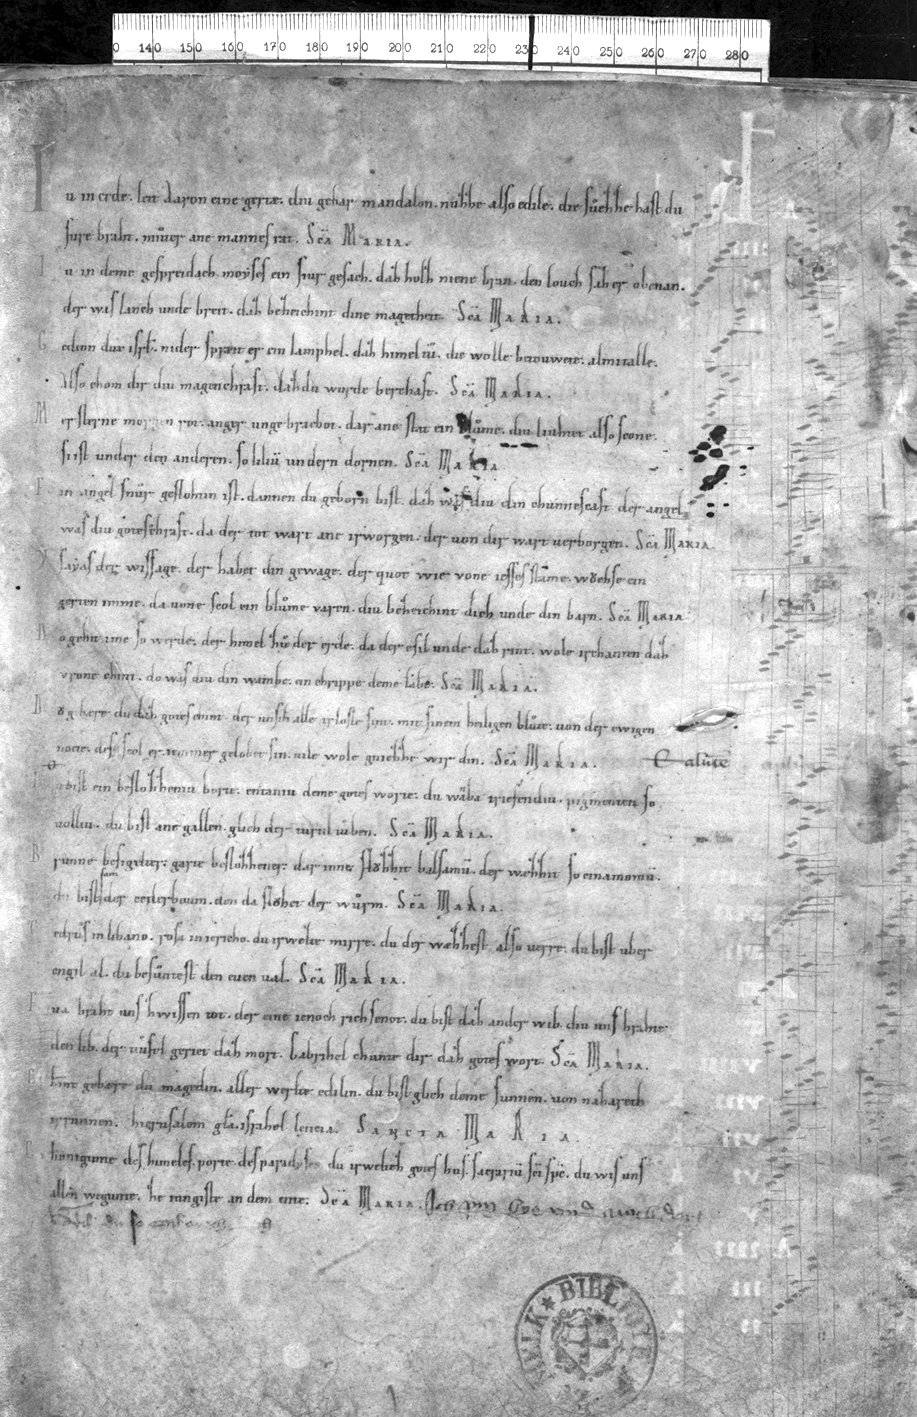 0 140 150 160 170 180 190 200 210 220 230 240 250 260 270 280
Iu in erde. leit aaron eine gertæ. diu gebar mandalon. nuͦzze also edile. die suͦezze hast du
fure braht. muͦter ane mannes rat. Sc̄ā Maria.
Iu in deme gespreidach. moyses ein fiur gesach. daz holz niene bran. den louch sah er obenan.
der was lanch unde breit. daz bezeichint dine magetheit. Sc̄ā Maria.
Gedeon dux isrł. nider spræit er ein lamphel. daz himeltū. die wolle betouwete. almitalle.
Also chom dir diu magenchraft. daz du wurde berehaft. Sc̄ā Maria.
Mersterne morgen rot. anger ungebrachot. dar ane stat ein bluͦme. diu liuhtet also scone.
si ist under den anderen. so liliū undern dornen. Sc̄ā Maria.
Ein angelsnuͦr geflohtin ist. dannen du geborn bist. daz was diu din chunnescaft. der angel
was diu gotes chraft. da der tot wart ane irworgen. der von dir wart verborgen. Sc̄ā Maria.
Ysayas der wissage. der habet din gewage. der quot wie vone iesses stāme. wuͦhse ein
gerten imme. da vone scol ein bluͦme varen. diu bezeichint dich unde din barn. Sc̄ā Maria
Do gehit ime so werde. der himel zuͦ der erde. da der esil unde daz rint. wole irchanten daz
vrone chint. do was diu din wambe. ein chrippe deme lābe. Sc̄ā Maria.
Do gebære du daz gotes chint. der unsih alle irloste sint. mit sinem heiligen bluͦte. von der ewigen
noete. des scol er iemmer gelobet sin. vile wole gniezze wir din. Sc̄ā Maria.
Du bist ein beslozzeniu borte. entaniu deme gotes worte. du wāba triefendiu. pigmenten so
volliu. du bist ane gallen. glich der turtiltuben. Sc̄ā Maria.
Brunne besigelter. garte beslozzener. dar inne fliuzzit balsamū. der wæzzit so cinamomū.
du bist sam der cederboum. den da flivhet der wuͦrm. Sc̄ā Maria.
Cedrus in libano. rosa in iericho. du irwelte mirre. du der wæzzest also verre. du bist uber
engil al. du besuͦntest den even val. Sc̄ā Maria.
Eva braht uns zwissen tot. der eine ienoch richsenot. du bist daz ander wib. diu uns brahte
den lib. der tiufel geriet daz mort. Gabrihel chunte dir daz gotes wort. Sc̄ā Maria.
Chint gebære du magedin. aller werlte edilin. du bist glich deme sunnen. von nazareth
irrunnen. hierusalem gła. israhel leticia. Sancta Maria.
Chuniginne des himeles. porte des paradyses. du irweltez gotes hus. sacrariū sc̄i sp̄c. du wis uns
allen wegunte. ze iungiste an dem ente. Sc̄ā Maria.